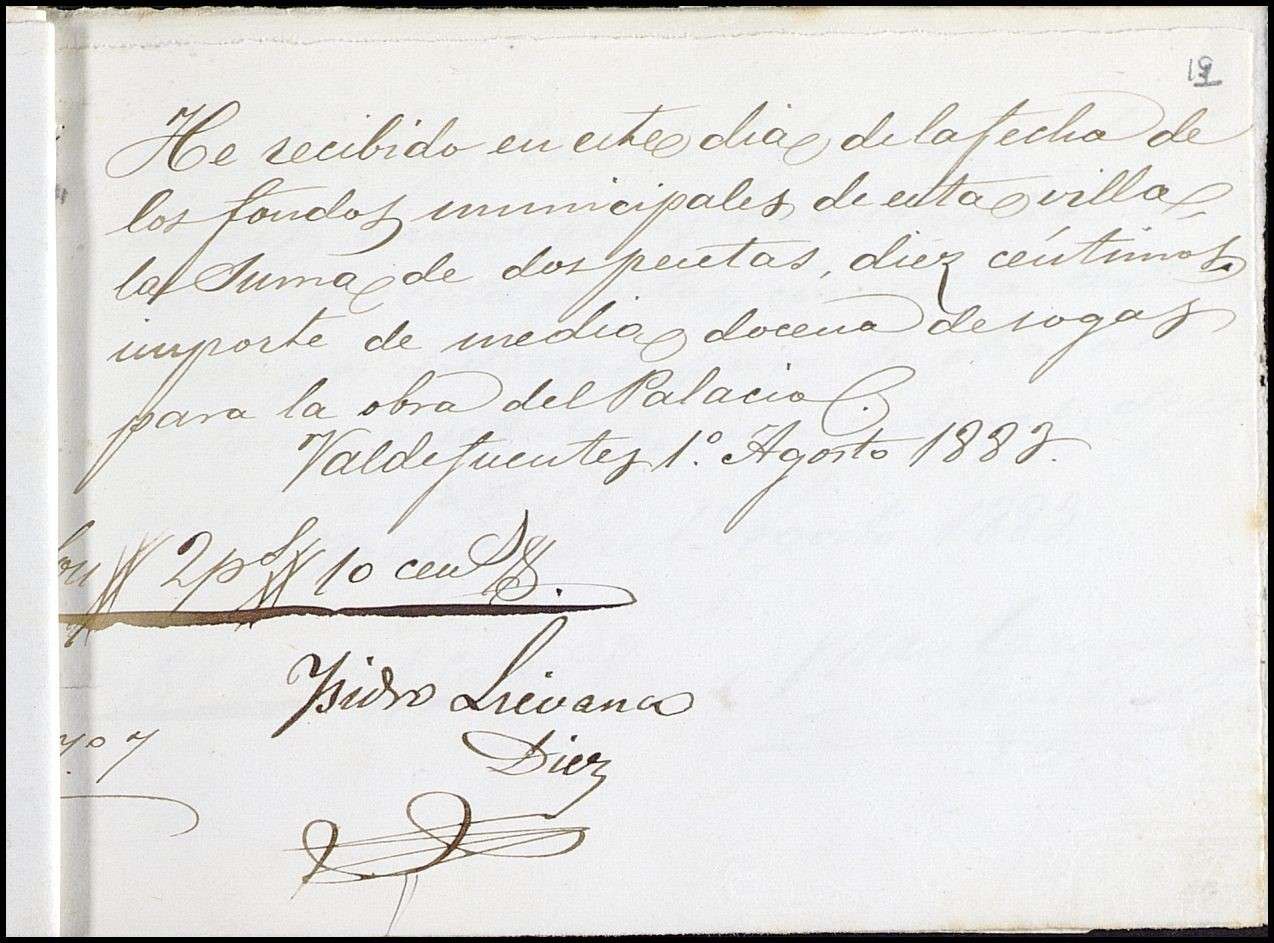 19
He recibido en este dia de la fecha de
los fondos municipales de esta villa,
la Suma de dos pesetas, diez céntimos
importe de media docena de sogas
para la obra del Palacio.
Valdefuentes 1.º Agosto 1883.
2 pts 10 cents.
Ysidro Lievana
Diez